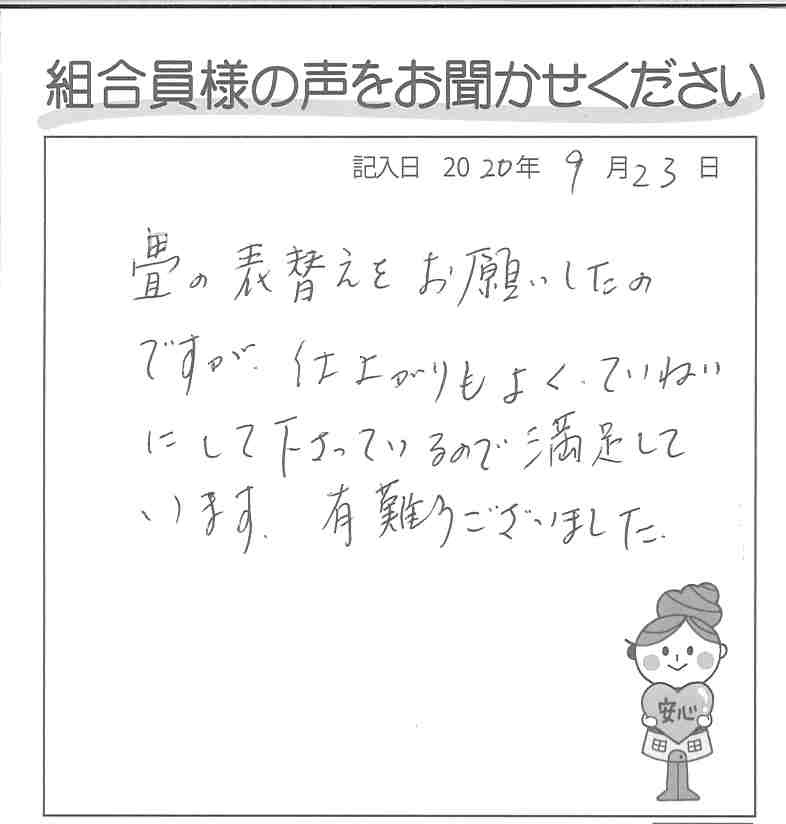 組合員様の声をお聞かせください
記入日 2020年 9月23日
畳の表替えをお願いしたの
ですが、仕上がりもよく、ていねい
にして下さっているので満足して
います。有難うございました。
安心